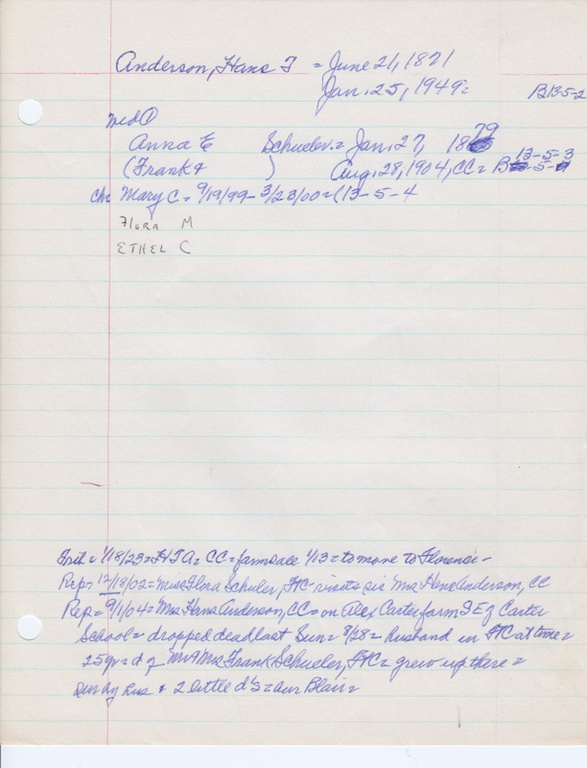 Anderson, Hans T = June 21, 1871
Jan. 25, 1949 =
B13-5-2
Med ①
Anna E Schueler = Jan. 27, 1879
(Frank & ) Aug. 28, 1904, CC = B 13-5-3
ch = Mary C = 9/19/99 - 3/23/00 = (13-5-4
Flora M
ETHEL C
1/18/23 = HTA = CC = farm sale 1/13 = to move to Florence -
Rep = 12/18/02 = Miss Flora Schuler, FtC visits sis Mrs Hans Anderson, CC
Rep = 9/1/04 = Mrs Hans Anderson, CC = on Alex Carter farm S E of Carter
School = dropped dead last Sun = 8/28 = Husband in FtC at time =
25 yr = d of Mr & Mrs Frank Schueler, FtC = grew up there =
surv by hus & 2 little d's = bur Blair =